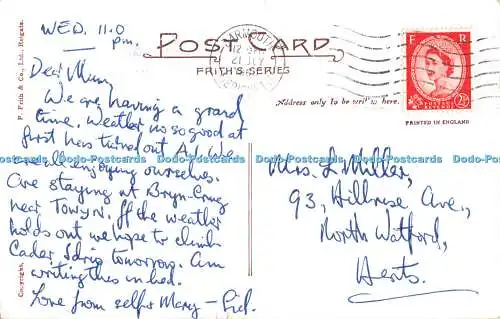 WED. 11.0
pm.
POST CARD
FRITH'S SERIES
Address only to be writ to here.
BARMOUTH
12
21 JLY
E R
POSTAGE
REVENUE
2½D
PRINTED IN ENGLAND
Copyright.
F. Frith & Co., Ltd., Reigate.
Dear Mum,
We are having a grand
time. Weather no so good at
first has turned out A1. We
are all enjoying ourselves.
Are staying at Bryn-Crug
near Towyn. If the weather
holds out we hope to climb
Cader Idris tomorrow. Am
writing this in bed.
Love from self & Mary – Sid.
Mrs. L. Miller,
93, Hillrise Ave.,
North Watford,
Herts.
Dodo-Postcards Dodo-Postcards Dodo-Postcards Dodo-Postcards